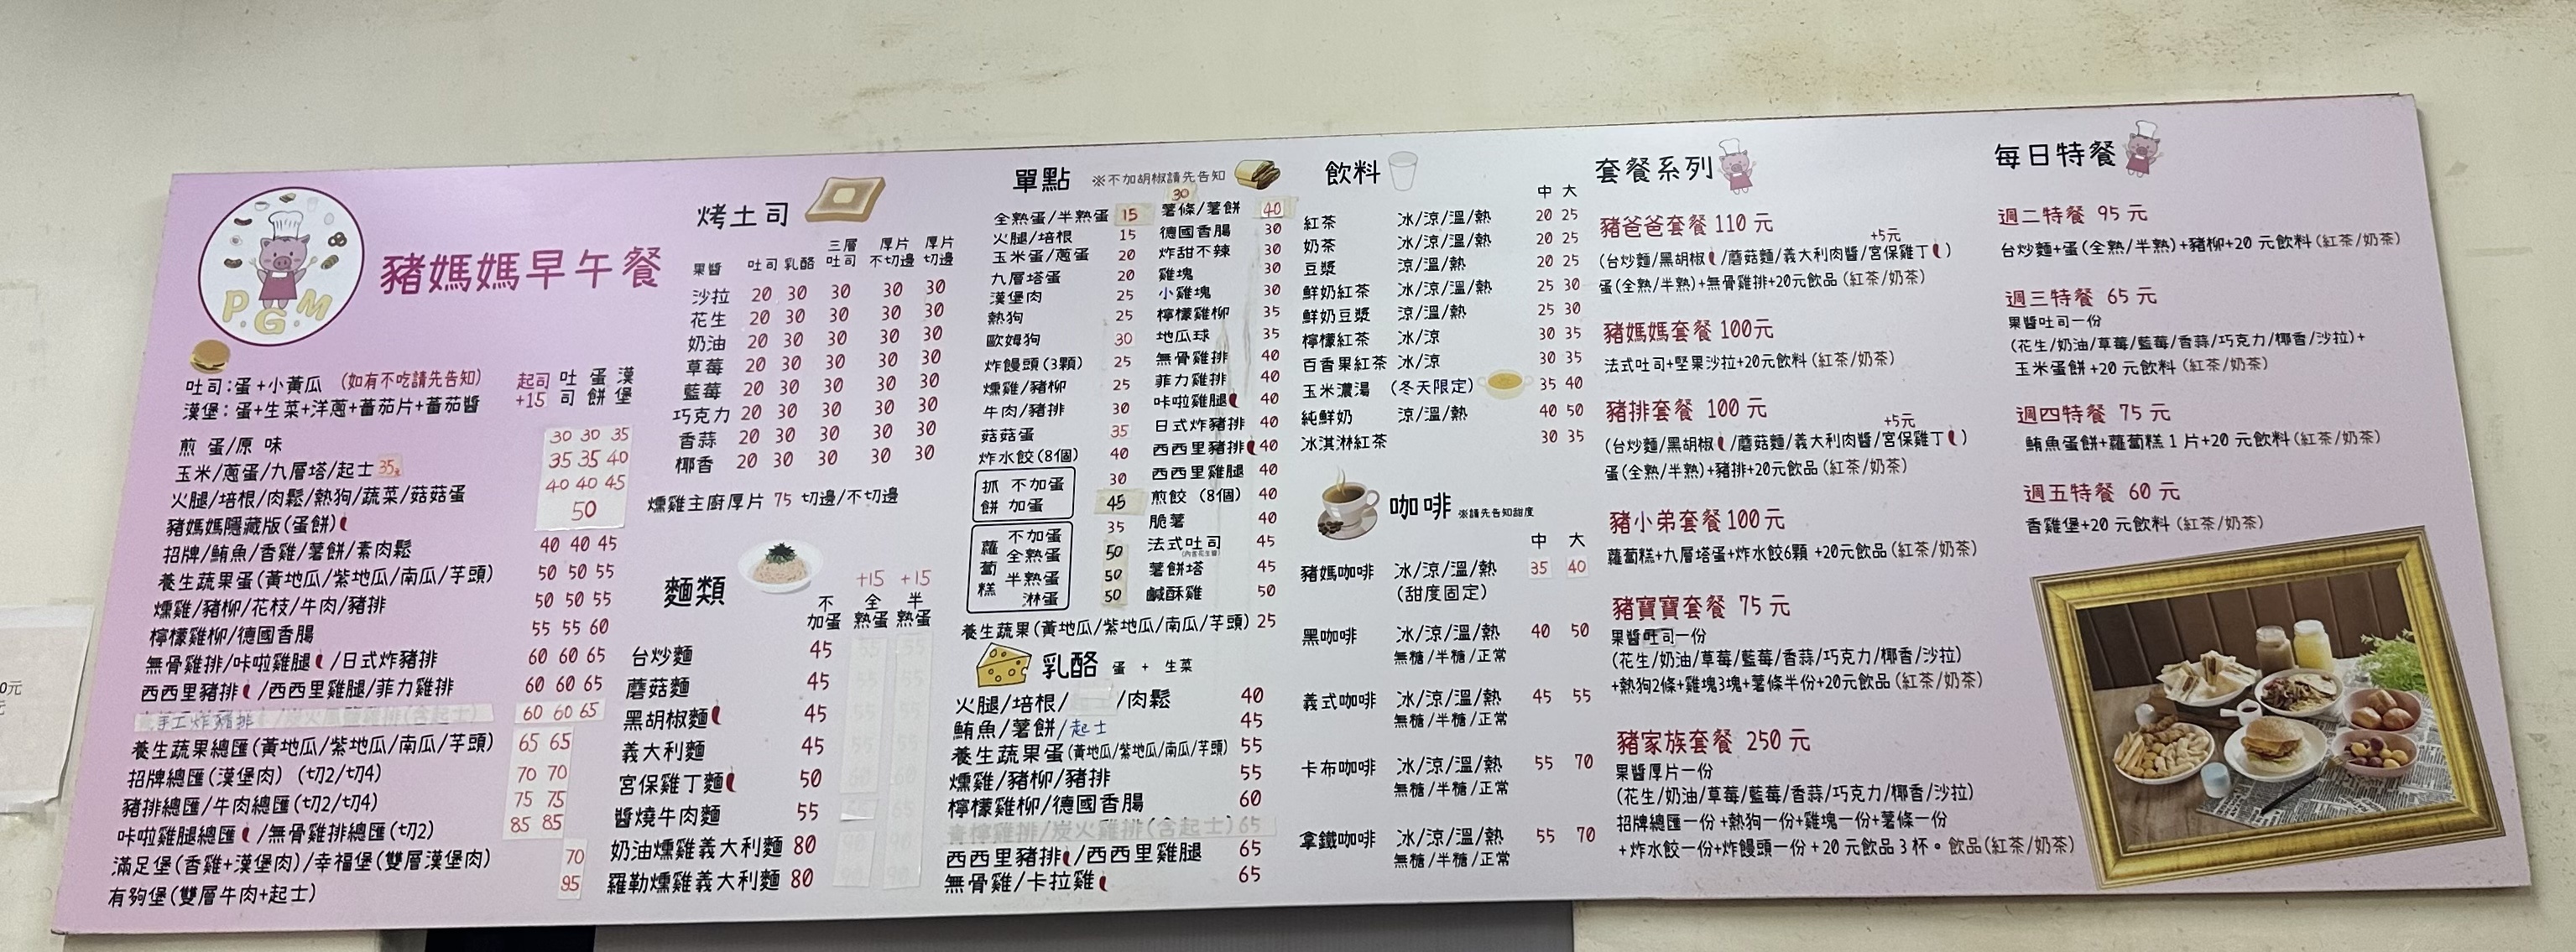 P.G.M
豬媽媽早午餐
吐司:蛋+小黃瓜 (如有不吃請先告知)
漢堡:蛋+生菜+洋蔥+蕃茄片+蕃茄醬
起司+15 吐司 蛋餅 漢堡
煎蛋/原味 30 30 35
玉米/蔥蛋/九層塔/起士35 35 35 40
火腿/培根/肉鬆/熱狗/蔬菜/菇菇蛋 40 40 45
豬媽媽隱藏版(蛋餅) 50
招牌/鮪魚/香雞/薯餅/素肉鬆 40 40 45
養生蔬果蛋(黃地瓜/紫地瓜/南瓜/芋頭) 50 50 55
燻雞/豬柳/花枝/牛肉/豬排 50 50 55
檸檬雞柳/德國香腸 55 55 60
無骨雞排/咔啦雞腿/日式炸豬排 60 60 65
西西里豬排/西西里雞腿/菲力雞排 60 60 65
手工炸豬排 60 60 65
養生蔬果總匯(黃地瓜/紫地瓜/南瓜/芋頭) 65 65
招牌總匯(漢堡肉) (切2/切4) 70 70
豬排總匯/牛肉總匯(切2/切4) 75 75
咔啦雞腿總匯/無骨雞排總匯(切2) 85 85
滿足堡(香雞+漢堡肉)/幸福堡(雙層漢堡肉) 70
有夠堡(雙層牛肉+起士) 95
烤土司
果醬 吐司 乳酪 三層吐司 厚片不切邊 厚片切邊
沙拉 20 30 30 30 30
花生 20 30 30 30 30
奶油 20 30 30 30 30
草莓 20 30 30 30 30
藍莓 20 30 30 30 30
巧克力 20 30 30 30 30
香蒜 20 30 30 30 30
椰香 20 30 30 30 30
燻雞主廚厚片 75 切邊/不切邊
麵類
不加蛋 +15 全熟蛋 +15 半熟蛋
台炒麵 45
蘑菇麵 45
黑胡椒麵 45
義大利麵 45
宮保雞丁麵 50
醬燒牛肉麵 55
奶油燻雞義大利麵 80
羅勒燻雞義大利麵 80
單點 ※不加胡椒請先告知
全熟蛋/半熟蛋 15
火腿/培根 15
玉米蛋/蔥蛋 20
九層塔蛋 20
漢堡肉 25
熱狗 25
歐姆狗 30
炸饅頭(3顆) 25
燻雞/豬柳 25
牛肉/豬排 30
菇菇蛋 35
炸水餃(8個) 40
抓餅 不加蛋 30
加蛋 45
蘿蔔糕 不加蛋 35
全熟蛋 50
半熟蛋 50
淋蛋 50
養生蔬果(黃地瓜/紫地瓜/南瓜/芋頭) 25
30
薯條/薯餅 40
德國香腸 30
炸甜不辣 30
雞塊 30
小雞塊 30
檸檬雞柳 35
地瓜球 35
無骨雞排 40
菲力雞排 40
咔啦雞腿 40
日式炸豬排 40
西西里豬排 40
西西里雞腿 40
煎餃(8個) 40
脆薯 40
法式吐司 45
薯餅塔 45
鹹酥雞 50
乳酪 蛋 + 生菜
火腿/培根/ /肉鬆 40
鮪魚/薯餅/起士 45
養生蔬果蛋(黃地瓜/紫地瓜/南瓜/芋頭) 55
燻雞/豬柳/豬排 55
檸檬雞柳/德國香腸 60
西西里豬排/西西里雞腿 65
無骨雞/卡拉雞 65
飲料
中 大
紅茶 冰/涼/溫/熱 20 25
奶茶 冰/涼/溫/熱 20 25
豆漿 涼/溫/熱 20 25
鮮奶紅茶 冰/涼/溫/熱 25 30
鮮奶豆漿 涼/溫/熱 25 30
檸檬紅茶 冰/涼 30 35
百香果紅茶 冰/涼 30 35
玉米濃湯 (冬天限定) 35 40
純鮮奶 涼/溫/熱 40 50
冰淇淋紅茶 30 35
咖啡 ※請先告知甜度
中 大
豬媽咖啡 冰/涼/溫/熱 35 40
(甜度固定)
黑咖啡 冰/涼/溫/熱 40 50
無糖/半糖/正常
義式咖啡 冰/涼/溫/熱 45 55
無糖/半糖/正常
卡布咖啡 冰/涼/溫/熱 55 70
無糖/半糖/正常
拿鐵咖啡 冰/涼/溫/熱 55 70
無糖/半糖/正常
套餐系列
豬爸爸套餐 110 元
+5元
(台炒麵/黑胡椒/蘑菇麵/義大利肉醬/宮保雞丁)
蛋(全熟/半熟)+無骨雞排+20元飲品(紅茶/奶茶)
豬媽媽套餐 100元
法式吐司+堅果沙拉+20元飲料(紅茶/奶茶)
豬排套餐 100 元
+5元
(台炒麵/黑胡椒/蘑菇麵/義大利肉醬/宮保雞丁)
蛋(全熟/半熟)+豬排+20元飲品(紅茶/奶茶)
豬小弟套餐100元
蘿蔔糕+九層塔蛋+炸水餃6顆 +20元飲品(紅茶/奶茶)
豬寶寶套餐 75 元
果醬吐司一份
(花生/奶油/草莓/藍莓/香蒜/巧克力/椰香/沙拉)
+熱狗2條+雞塊3塊+薯條半份+20元飲品(紅茶/奶茶)
豬家族套餐 250 元
果醬厚片一份
(花生/奶油/草莓/藍莓/香蒜/巧克力/椰香/沙拉)
招牌總匯一份+熱狗一份+雞塊一份+薯條一份
+炸水餃一份+炸饅頭一份+20 元飲品3 杯。飲品(紅茶/奶茶)
每日特餐
週二特餐 95 元
台炒麵+蛋(全熟/半熟)+豬柳+20 元飲料(紅茶/奶茶)
週三特餐 65 元
果醬吐司一份
(花生/奶油/草莓/藍莓/香蒜/巧克力/椰香/沙拉)+
玉米蛋餅+20 元飲料(紅茶/奶茶)
週四特餐 75 元
鮪魚蛋餅+蘿蔔糕1片+20 元飲料(紅茶/奶茶)
週五特餐 60 元
香雞堡+20 元飲料(紅茶/奶茶)